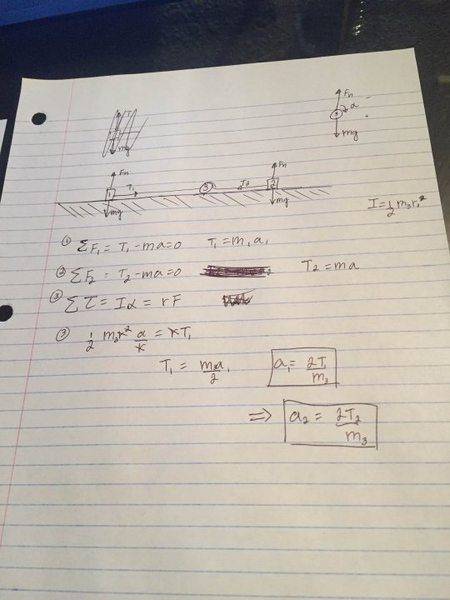 Fn
α
mg
mg
Fn
Fn
1
T₁
3
2
mg
mg
I = ½ m₃r²
① ΣF₁ = T₁ - ma = 0 T₁ = m₁a₁
② ΣF₂ = T₂ - ma = 0 T₂ = ma
③ Στ = Iα = rF
③ ½ m₃r² a/r = rT₁
T₁ = m₃a₁/2 a₁ = 2T₁/m₃
⇒ a₂ = 2T₂/m₃